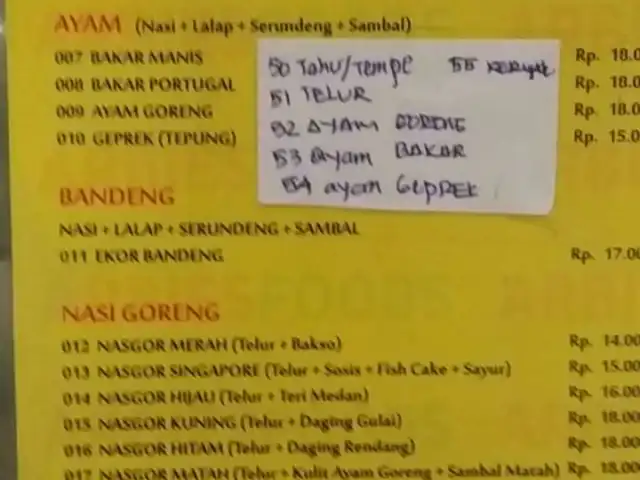 AYAM (Nasi + Lalap + Serundeng + Sambal)
007 BAKAR MANIS Rp. 18.0
008 BAKAR PORTUGAL Rp. 18.0
009 AYAM GORENG Rp. 18.0
010 GEPREK (TEPUNG) Rp. 15.0
50 Tahu/Tempe 55 KERUPUK
51 TELUR
52 AYAM GORENG
53 Ayam BAKAR
54 ayam GEPREK
BANDENG
NASI + LALAP + SERUNDENG + SAMBAL
011 EKOR BANDENG Rp. 17.00
NASI GORENG
012 NASGOR MERAH (Telur + Bakso) Rp. 14.00
013 NASGOR SINGAPORE (Telur + Sosis + Fish Cake + Sayur) Rp. 15.00
014 NASGOR HIJAU (Telur + Teri Medan) Rp. 16.00
015 NASGOR KUNING (Telur + Daging Gulai) Rp. 18.00
016 NASGOR HITAM (Telur + Daging Rendang) Rp. 18.00
017 NASGOR MATAH (Telur + Kulit Ayam Goreng + Sambal Matah) Rp. 18.00